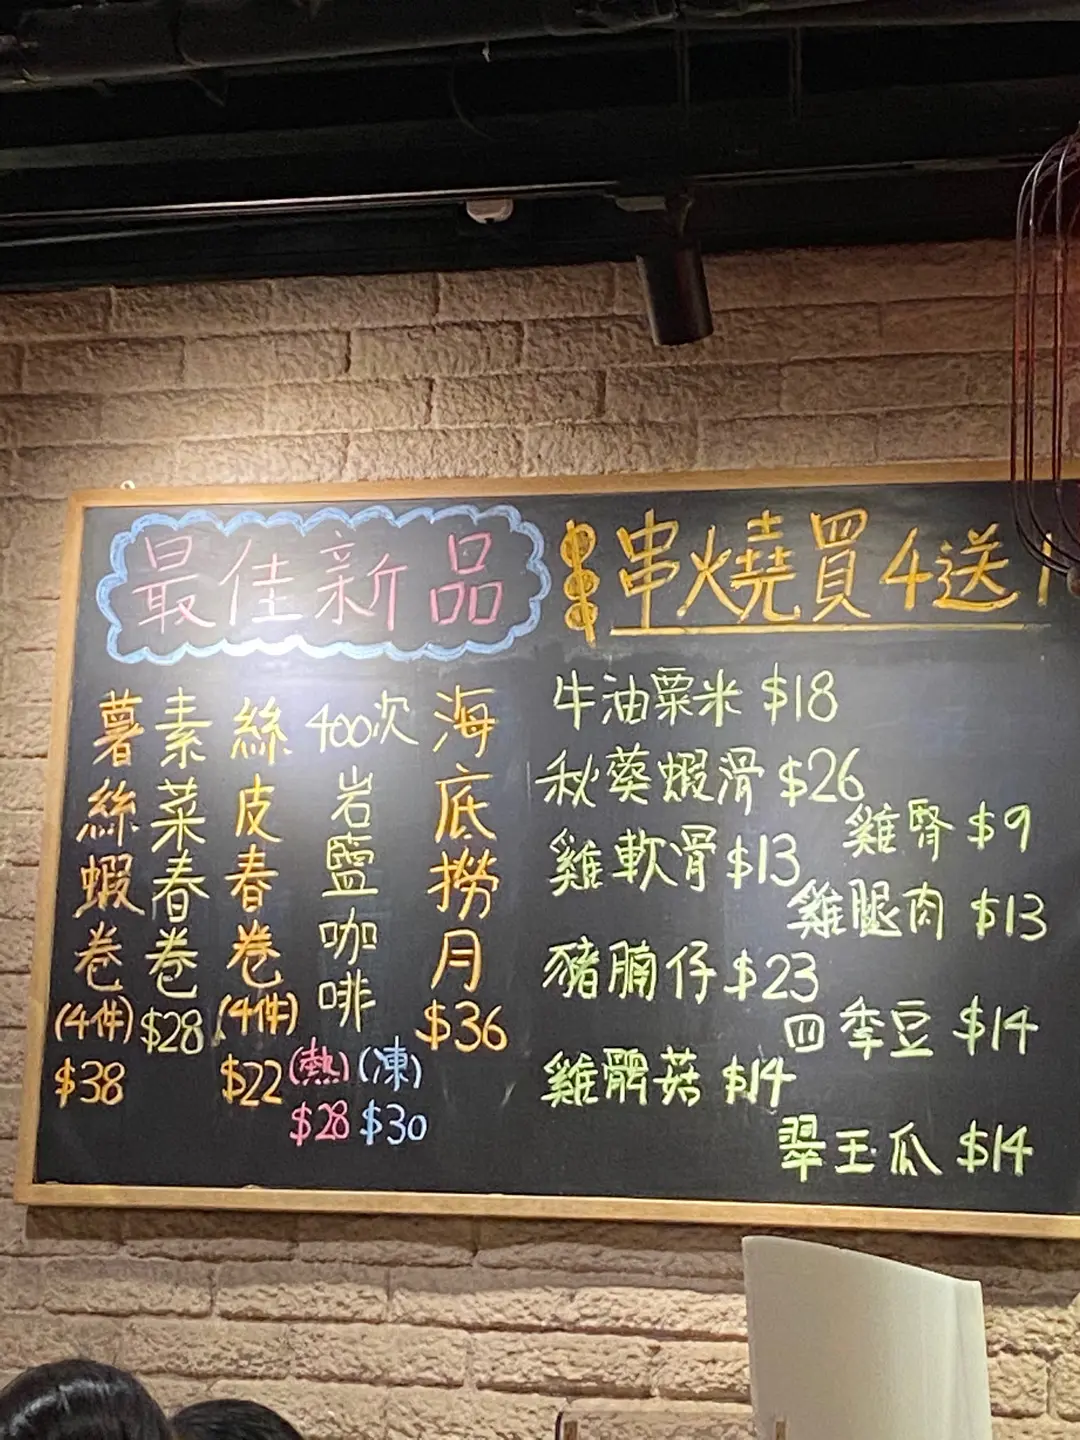 最佳新品
海底撈月
$36
400次岩鹽咖啡
(熱) (凍)
$28 $30
絲皮春卷
(4件)
$22
素菜春卷
$28
薯絲蝦卷
(4件)
$38
串燒買4送1
牛油粟米 $18
秋葵蝦滑 $26
雞腎 $9
雞軟骨 $13
雞腿肉 $13
豬腩仔 $23
四季豆 $14
雞髀菇 $14
翠玉瓜 $14